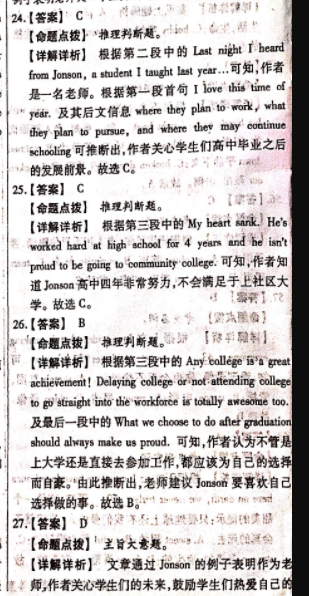 24.【答案】 C
【命题点拨】 推理判断题。
【详解详析】 根据第二段中的 Last night I heard
from Jonson, a student I taught last year…可知,作者
是一名老师。根据第一段首句 I love this time of
year. 及其后文信息 where they plan to work, what
they plan to pursue, and where they may continue
schooling 可推断出,作者关心学生们高中毕业之后
的发展前景。故选 C。
25.【答案】 C
【命题点拨】 推理判断题。
【详解详析】 根据第三段中的 My heart sank. He's
worked hard at high school for 4 years and he isn't
proud to be going to community college. 可知,作者知
道 Jonson 高中四年非常努力,不会满足于上社区大
学。故选 C。
26.【答案】 B
【命题点拨】 推理判断题。
【详解详析】 根据第三段中的 Any college is a great
achievement! Delaying college or not attending college
to go straight into the workforce is totally awesome too.
及最后一段中的 What we choose to do after graduation
should always make us proud. 可知,作者认为不管是
上大学还是直接去参加工作,都应该为自己的选择
而自豪。由此推断出,老师建议 Jonson 要喜欢自己
选择做的事。故选 B。
27.【答案】 D
【命题点拨】 主旨大意题。
【详解详析】 文章通过 Jonson 的例子表明作为老
师,作者关心学生们的未来,鼓励学生们热爱自己的